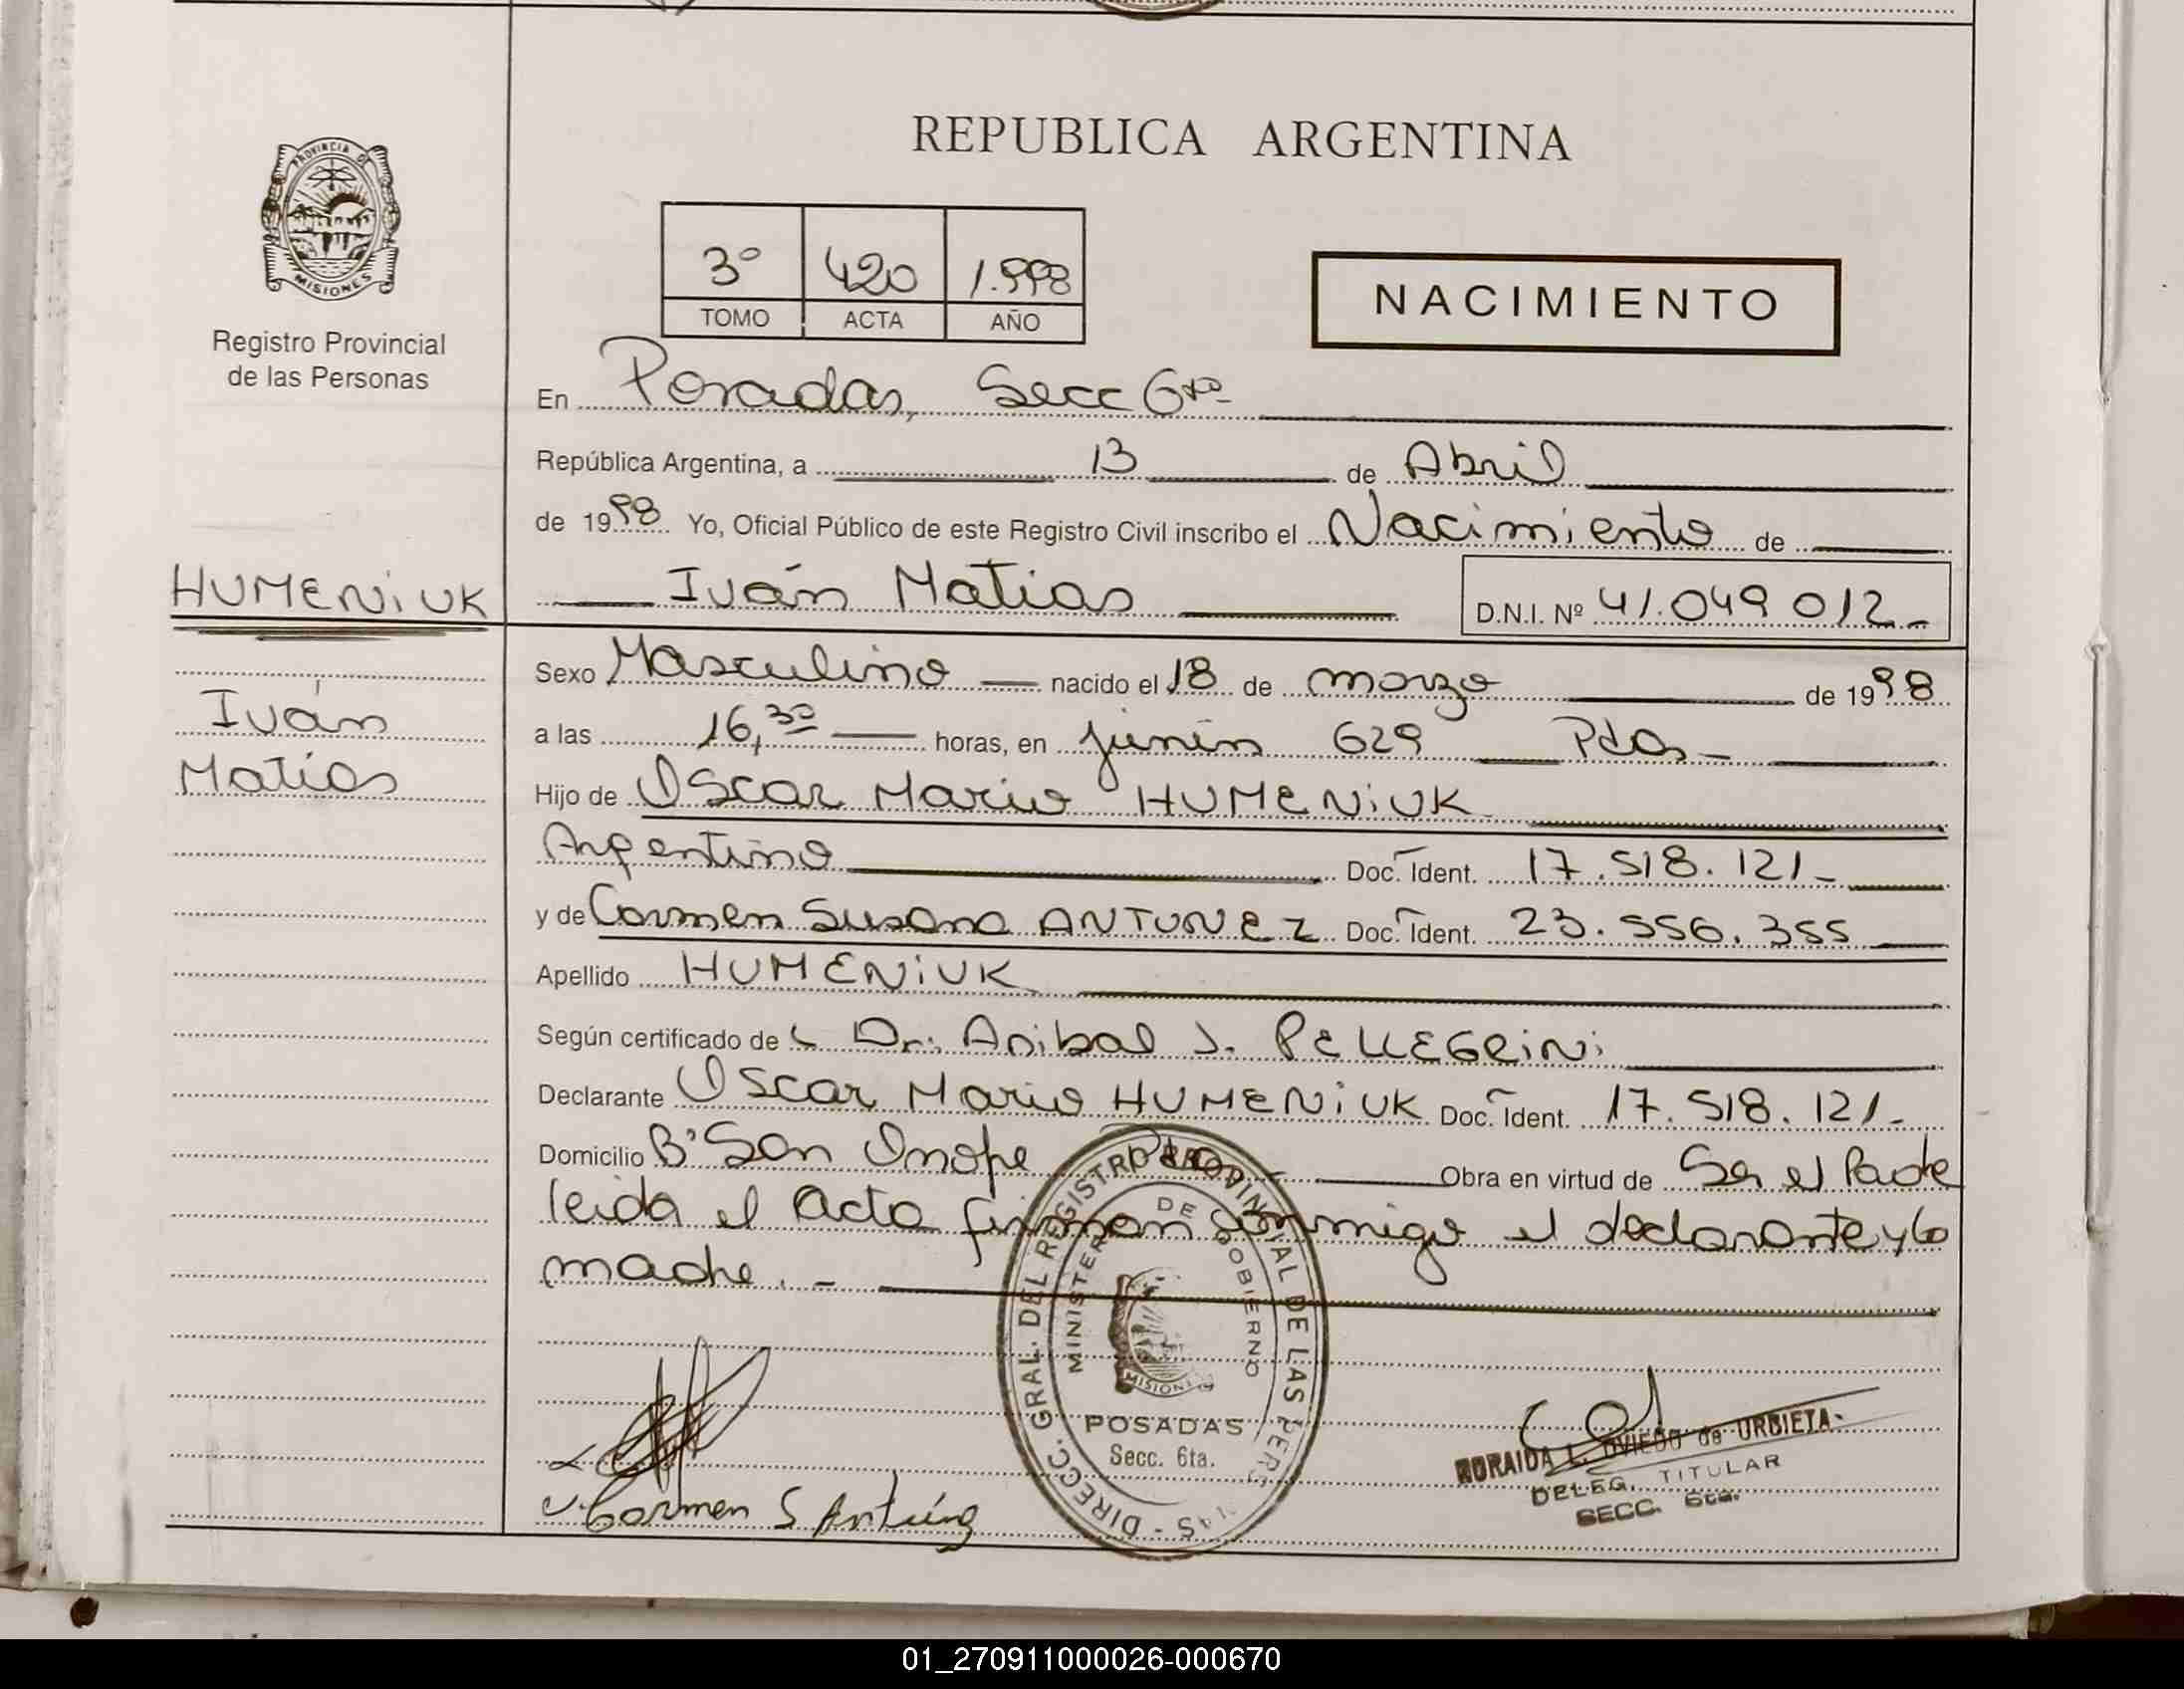 REPUBLICA ARGENTINA
PROVINCIA DE
MISIONES
Registro Provincial
de las Personas
3º 420 1.998
TOMO ACTA AÑO
NACIMIENTO
En Posadas, Secc 6ta
República Argentina, a 13 de Abril
de 1998 Yo, Oficial Público de este Registro Civil inscribo el Nacimiento de
HUMENIUK
Iván Matias
D.N.I. Nº 41.049 012-
Iván
Matías
Sexo Masculino nacido el 18 de marzo de 1998
a las 16,30 horas, en Junín 629 Pdas-
Hijo de Oscar Mario HUMENIUK
Argentino Doc. Ident. 17.518.121-
y de Carmen Susana ANTUNEZ Doc. Ident. 23.556.355
Apellido HUMENIUK
Según certificado de Dr. Anibal J. PELLEGRINI
Declarante Oscar Mario HUMENIUK Doc. Ident. 17.518.121-
Domicilio Bº San Onofre Pdas Obra en virtud de Ser el Padre
leida el Acta firman conmigo el declarante y la
madre.-
DIRECC. GRAL. DEL REGISTRO PROVINCIAL DE LAS PERSONAS
MINISTERIO DE GOBIERNO
MISIONES
POSADAS
Secc. 6ta.
Carmen S Antúnez
ZORAIDA L. OVIEDO de URBIETA
DELEG. TITULAR
SECC. 6ta.
01_270911000026-000670